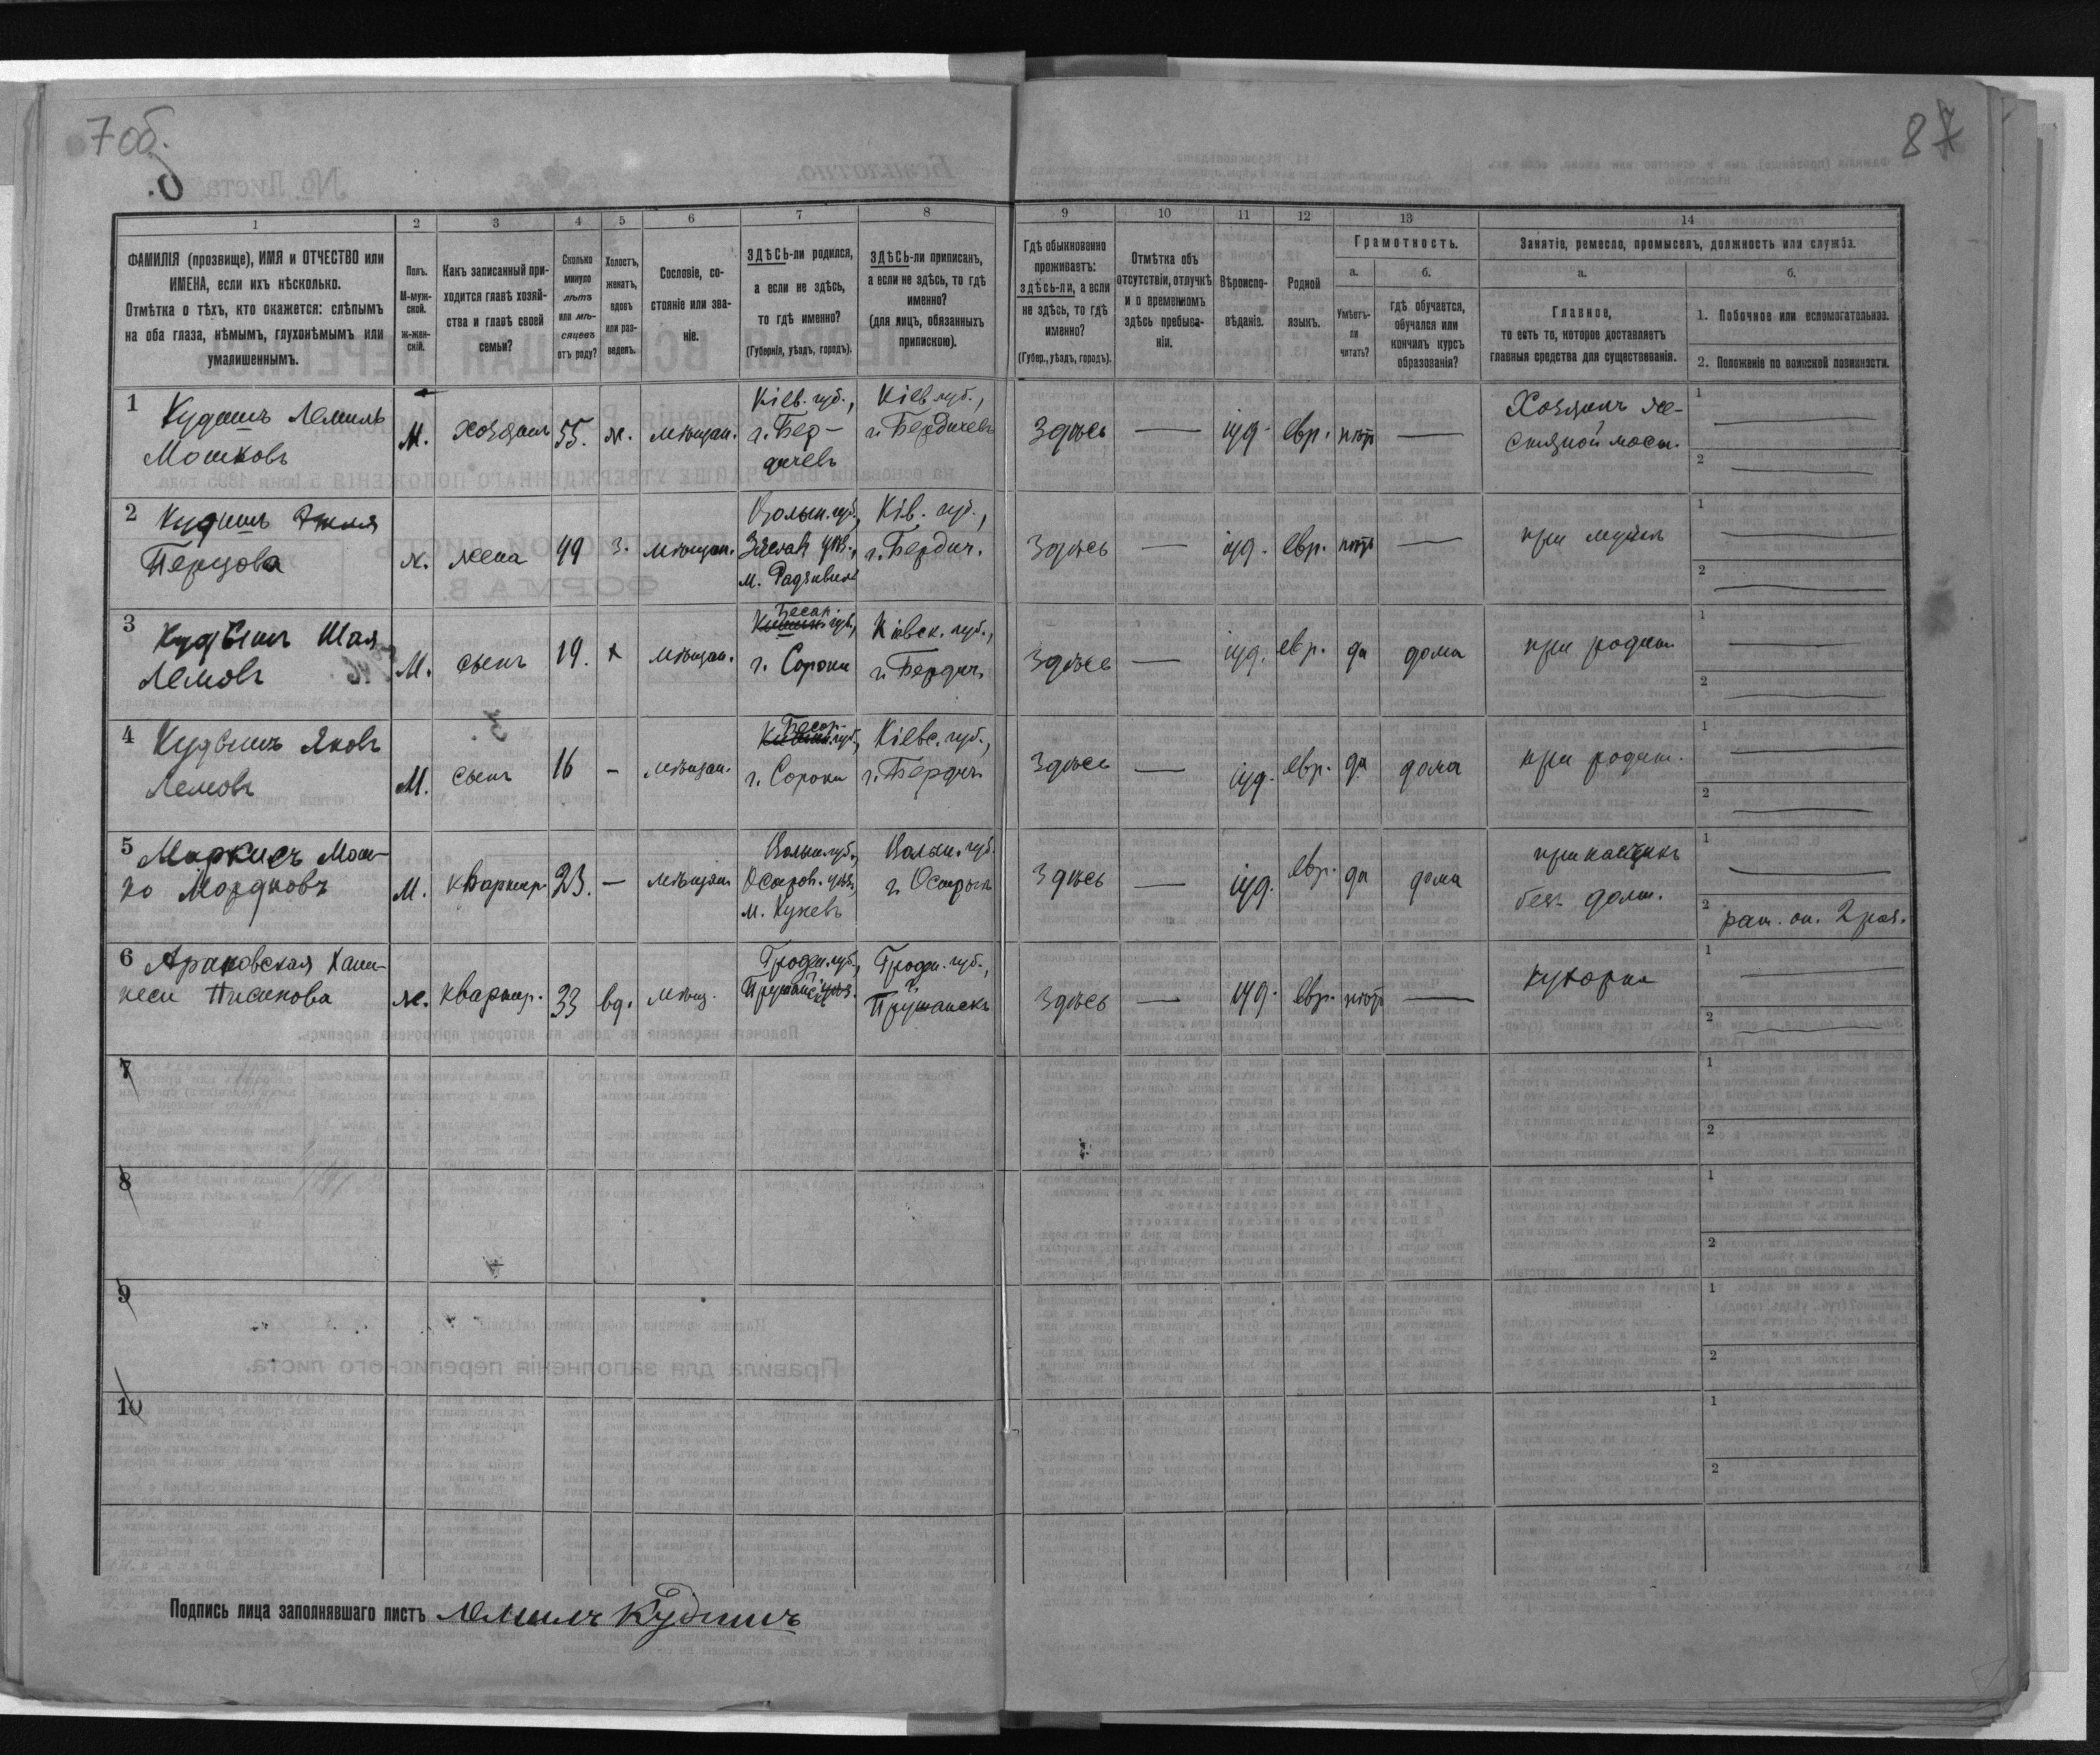 7 об.
87
1
2
3
4
5
6
7
8
9
10
11
12
13
14
ФАМИЛІЯ (прозвище), ИМЯ и ОТЧЕСТВО или
ИМЕНА, если ихъ нѣсколько.
Отмѣтка о тѣхъ, кто окажется: слѣпымъ
на оба глаза, нѣмымъ, глухонѣмымъ или
умалишеннымъ.
Полъ.
М-муж-
ской.
ж-жен-
скій.
Какъ записанный при-
ходится главѣ хозяй-
ства и главѣ своей
семьи?
Сколько
минуло
лѣтъ
или мѣ-
сяцевъ
отъ роду?
Холостъ,
женатъ,
вдовъ
или раз-
веденъ.
Сословіе, со-
стояніе или зва-
ніе.
ЗДѢСЬ-ли родился,
а если не здѣсь,
то гдѣ именно?
(Губернія, уѣздъ, городъ).
ЗДѢСЬ-ли приписанъ,
а если не здѣсь, то гдѣ
именно?
(для лицъ, обязанныхъ
припискою).
Гдѣ обыкновенно
проживаетъ:
здѣсь-ли, а если
не здѣсь, то гдѣ
именно?
(Губер., уѣздъ, городъ).
Отмѣтка объ
отсутствіи, отлучкѣ
и о временномъ
здѣсь пребыва-
ніи.
Вѣроиспо-
вѣданіе.
Родной
языкъ.
Грамотность.
а.
Умѣетъ-
ли
читать?
б.
Гдѣ обучается,
обучался или
кончилъ курсъ
образованія?
Занятіе, ремесло, промыселъ, должность или служба.
а.
Главное,
то есть то, которое доставляетъ
главныя средства для существованія.
б.
1. Побочное или вспомогательное.
2. Положеніе по воинской повинности.
1
Мошковъ
М.
хозяинъ
55.
ж.
мѣщан.
Кіев. губ.,
г. Бер-
дичевъ
Кіев губ.,
г. Бердичевъ
Здѣсь
—
іуд.
евр.
нѣтъ
—
Хозяинъ
1
2
2
Перцова
ж.
жена
49
з.
мѣщан.
Волын. губ.,
Кіев. губ.,
г. Бердич.
Здѣсь
—
іуд.
евр.
нѣтъ
—
при мужѣ
1
2
3
Шая
М.
сынъ
19.
х
мѣщан.
Бесар.
губ.,
г. Сороки
Кіевск. губ.,
г. Бердич.
Здѣсь
—
іуд.
евр.
да
дома
при родит.
1
2
4
Яковъ
М.
сынъ
16
–
мѣщан.
Бесар.
губ.,
г. Сороки
Кіевс. губ.,
г. Бердич.
Здѣсь
—
іуд.
евр.
да
дома
при родит.
1
2
5
Маркисъ Мош-
ко Мордковъ
М.
квартир.
23.
—
мѣщан.
Волын. губ.,
Острож. уѣз.,
м. Куневъ
Волын. губ.
г. Острогъ
Здѣсь
—
іуд.
евр.
да
дома
прикащикъ
без. долж.
1
2
рат. оп. 2 раз.
6
ж.
квартир.
33
вд.
мѣщ.
Гродн. губ.,
Пружанскій уѣз.
Гродн. губ.,
г. Пружанскъ
Здѣсь
—
іуд.
евр.
нѣтъ
—
кухарка
1
2
7
1
2
8
1
2
9
1
2
10
1
2
Подпись лица заполнявшаго листъ